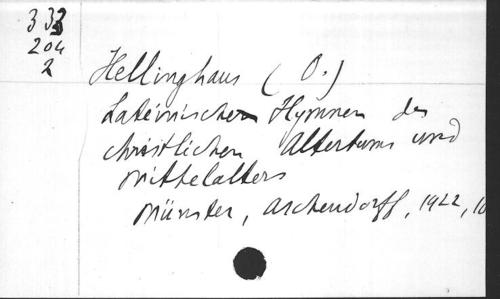 333
204
2
Hellinghaus (O.)
Lateinische Hymnen des
christlichen Altertums und
Mittelalters
Münster, Aschendorff, 1922,